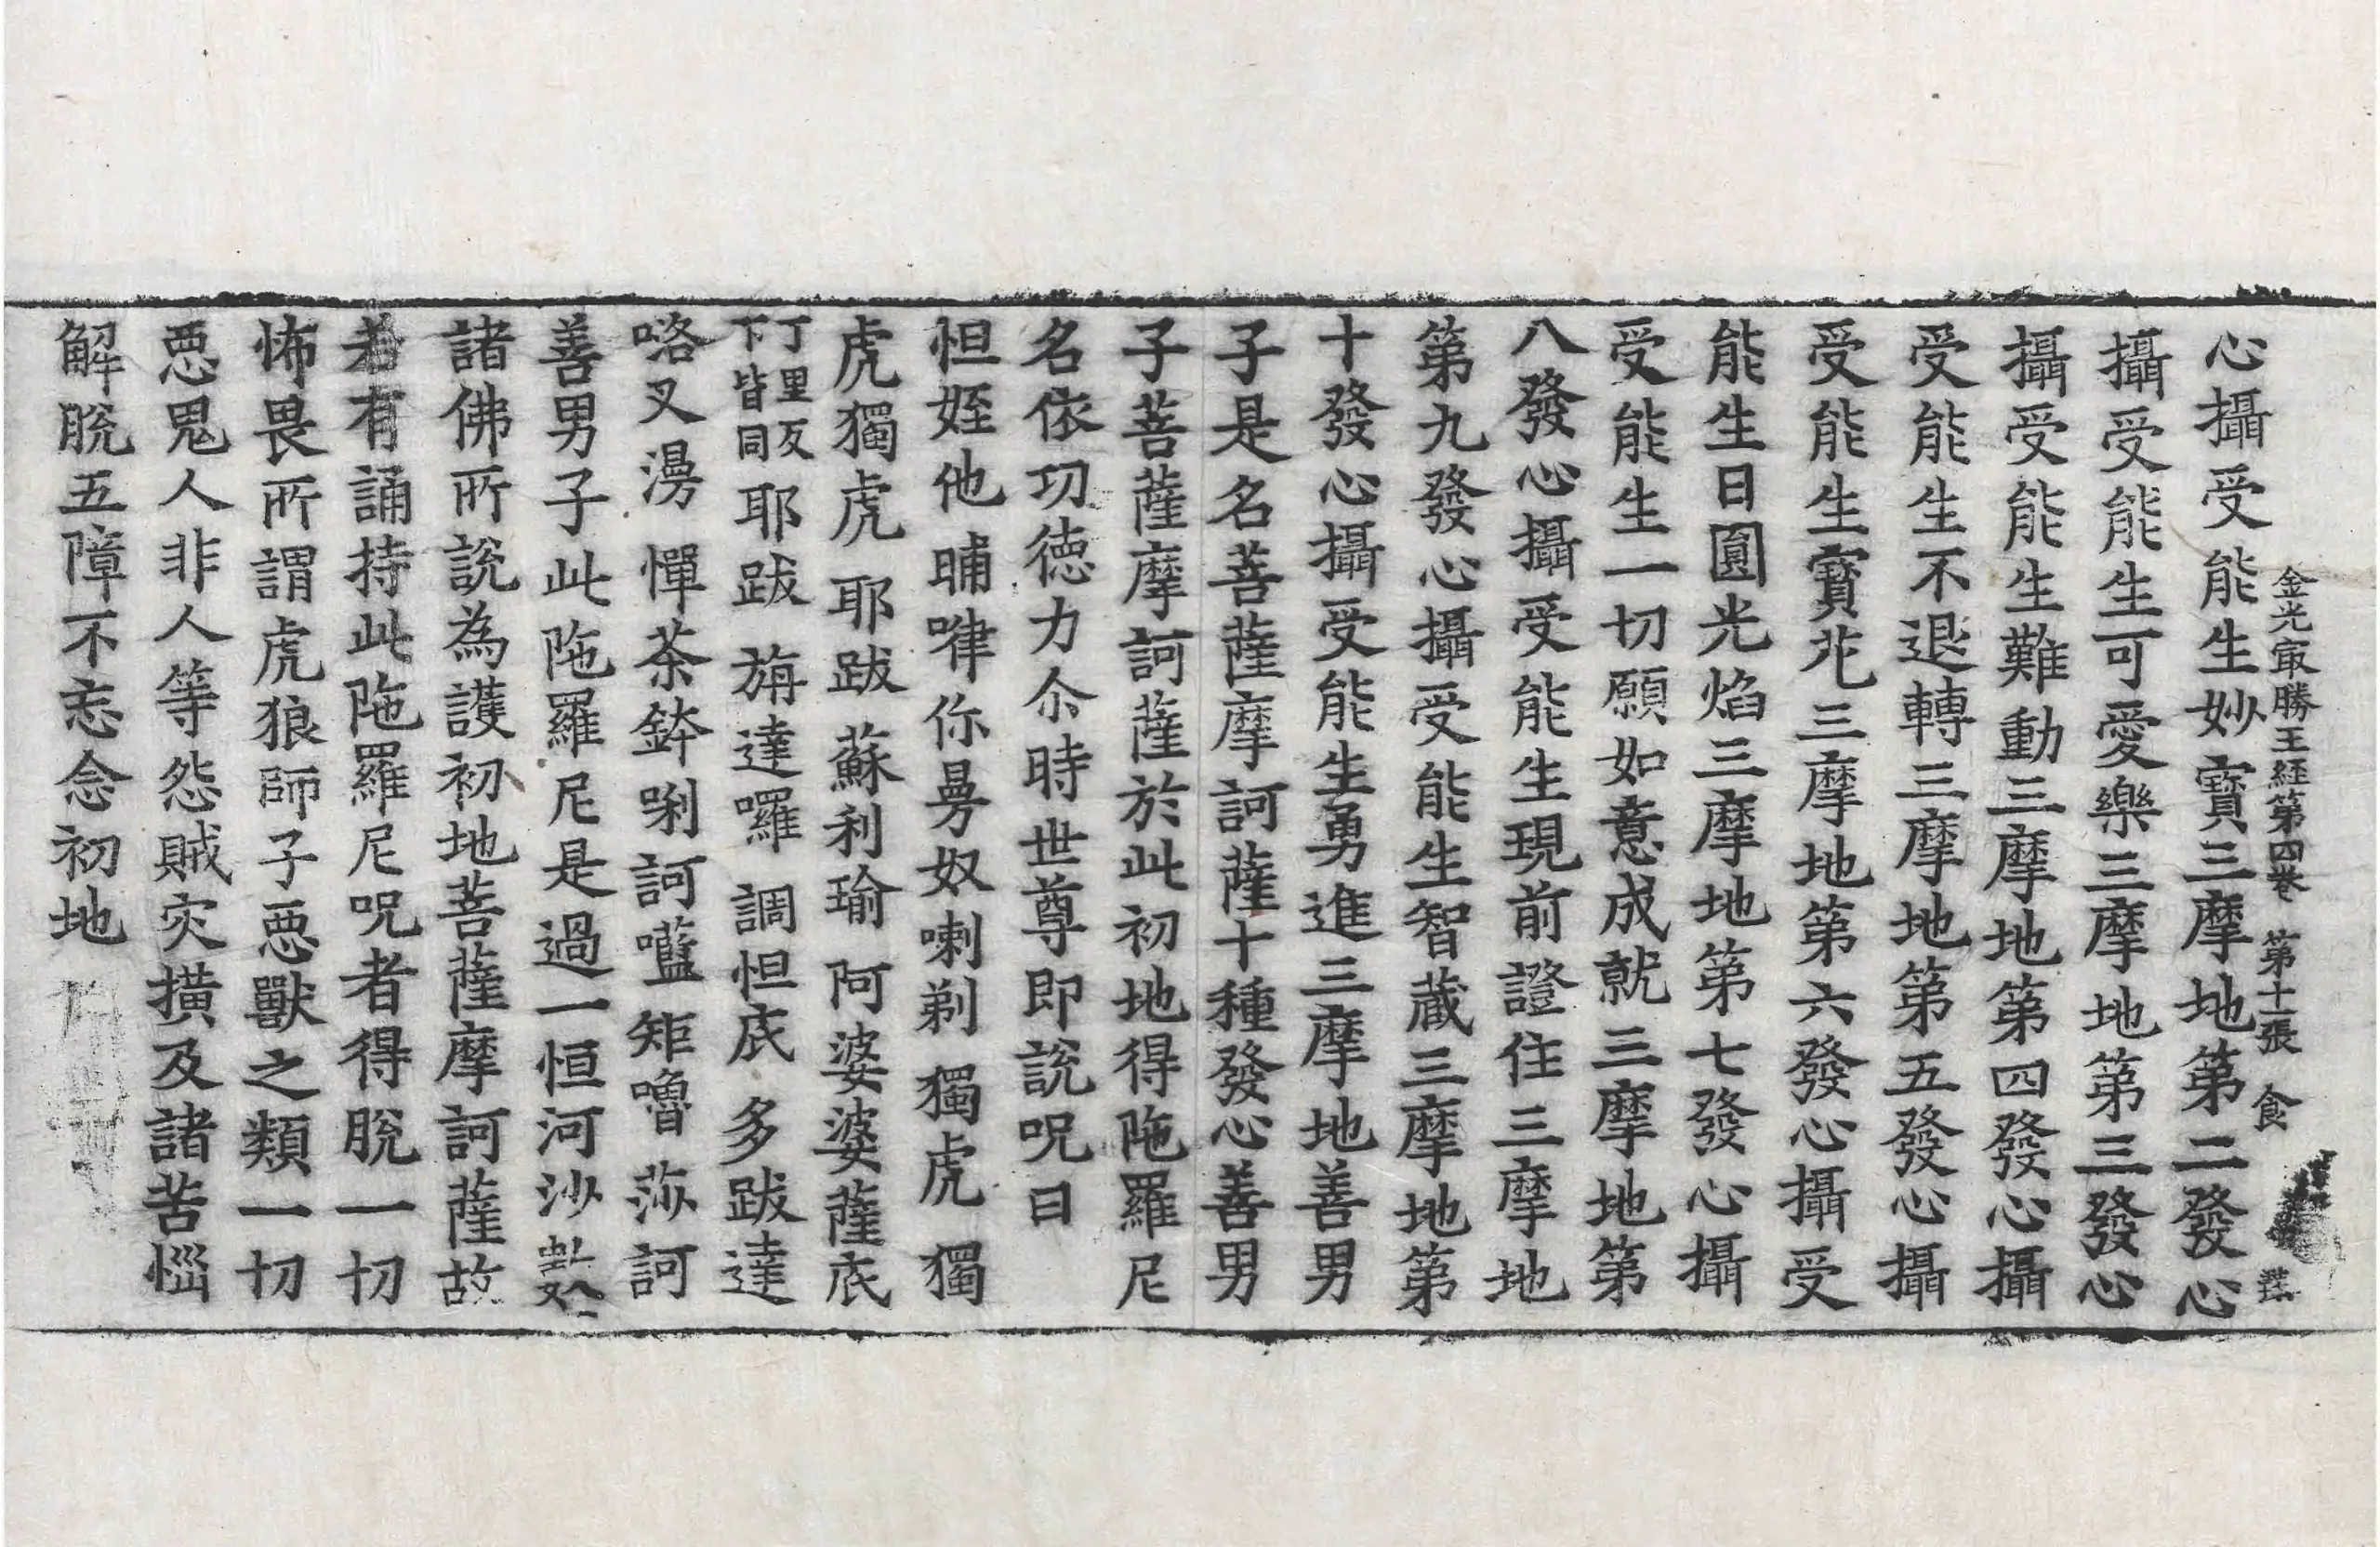 金光冣勝王経第四卷 第十一張 食
心攝受能生妙寶三摩地第二發心
攝受能生可愛樂三摩地第三發心
攝受能生難動三摩地第四發心攝
受能生不退轉三摩地第五發心攝
受能生寶花三摩地第六發心攝受
能生日圓光焰三摩地第七發心攝
受能生一切願如意成就三摩地第
八發心攝受能生現前證住三摩地
第九發心攝受能生智蔵三摩地第
十發心攝受能生勇進三摩地善男
子是名菩薩摩訶薩十種發心善男
子菩薩摩訶薩於此初地得陁羅尼
名依功德力尒時世尊即說呪曰
怛姪他 晡㗚你曼奴喇剃 獨虎 獨
虎獨虎 耶跋 蘇利瑜 阿婆婆薩底
丁里反下皆同 耶跋 旃達囉 調怛底 多跋達
咯叉湯 憚荼鉢唎訶𡅖 矩嚕 莎訶
善男子此陁羅尼是過一恒河沙數
諸佛所說為護初地菩薩摩訶薩故
若有誦持此陁羅尼呪者得脫一切
怖畏所謂虎狼師子惡獸之類一切
惡鬼人非人等怨賊灾撗及諸苦惱
解脫五障不忘念初地